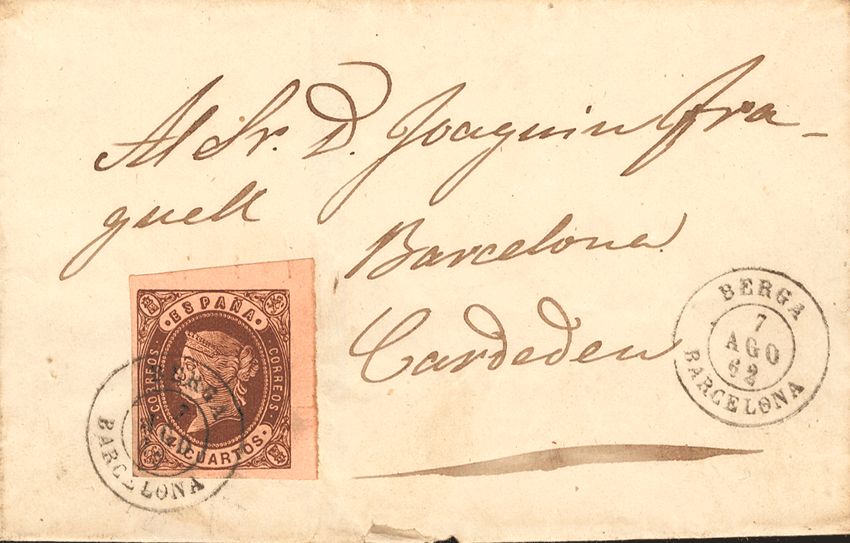 Al Sr. D. Joaquin Fra-
guell
Barcelona
Cardedeu
ESPAÑA
CORREOS
CORREOS
CUARTOS
BERGA
7
BARCELONA
BERGA
7
AGO
62
BARCELONA